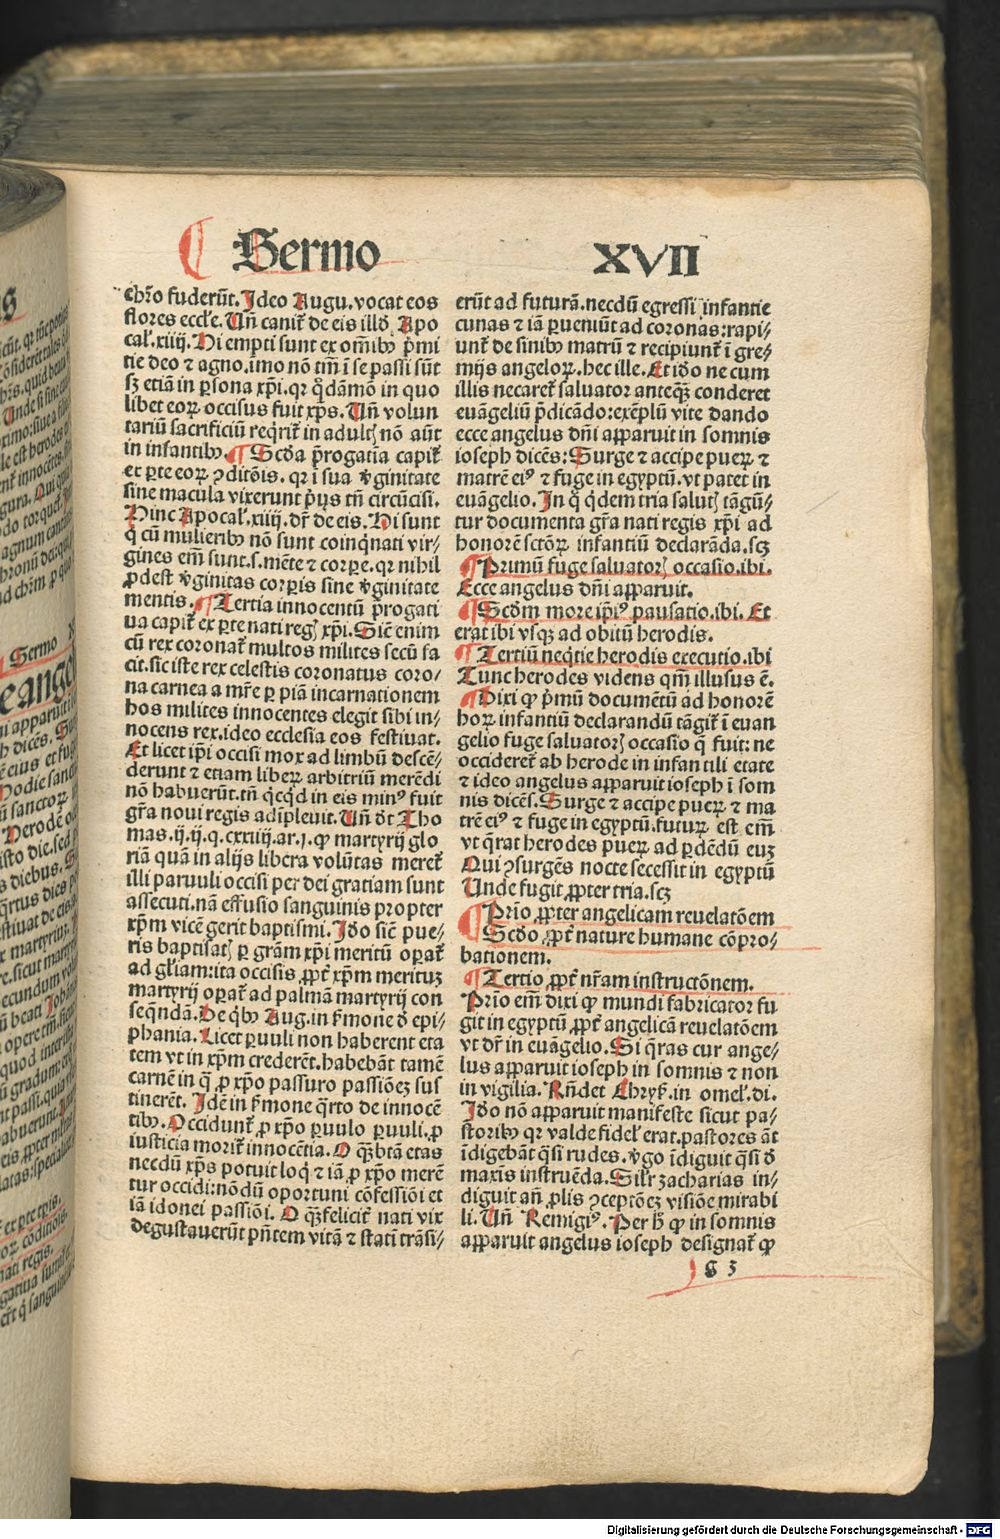 Sermo XVII
chr̄o fuderūt. Ideo Augu. vocat eos
flores eccl'e. Uñ canit̄ de eis illđ Apo
cal̄. xiiij. Hi empti sunt ex om̄ibꝰ p̄mi
tie deo ⁊ agno. imo nō tm̄ ī se passi sūt
sꝫ etiā in ꝑsona xp̄i. qr q̄dāmō in quo
libet eoꝝ occisus fuit xp̄s. Uñ volun
tariū sacrificiū req̄rit̄ in adultꝭ nō aūt
in infantibꝰ. ¶ Scđa p̄rogatia capit̄
et ꝑte eoꝝ ꝯditōis. qr ī sua v̄ginitate
sine macula vixerunt p̄ijs tn̄ circūcisi.
Hinc Apocal̄. xiiij. dr̄ de eis. Hi sunt
q̄ cū mulieribꝰ nō sunt coinq̄nati vir⸗
gines em̄ sunt. s. mēte ⁊ corꝑe. qr nihil
ꝓdest v̄ginitas corꝑis sine v̄ginitate
mentis. ¶ Tertia innocentū p̄rogati
ua capit̄ ex ꝑte nati regꝭ xp̄i. Sic̄ enim
cū rex coronat̄ multos milites secū fa
cit. sic iste rex celestis coronatus coro⸗
na carnea a mr̄e ꝑ piā incarnationem
hos milites innocentes elegit sibi in⸗
nocens rex. ideo ecclesia eos festiuat.
Et licet ip̄i occisi mox ad limbū descē⸗
derunt ⁊ etiam liberꝝ arbitriū merēdi
nō habuerūt. tn̄ q̄cq̄d in eis minꝰ fuit
gr̄a noui regis adipleuit. Uñ dt̄ Tho
mas. ij. ij. q. cxxiiij. ar. j. ꝙ martyrij glo
riā quā in alijs libera volūtas meret̄
illi paruuli occisi per dei gratiam sunt
assecuti. nā effusio sanguinis propter
xp̄m vicē gerit baptismi. Iđo sic̄ pue⸗
ris baptisatꝭ ꝑ grām xp̄i meritū oꝑat̄
ad gl'iam: ita occisis ꝓpt̄ xp̄m merituꝫ
martyrij oꝑat̄ ad palmā martyrij con
seq̄ndā. De q̄bꝰ Aug. in s̄mone đ epi⸗
phania. Licet ꝑuuli non haberent eta
tem vt in xp̄m crederēt. habebāt tamē
carnē in q̄ ꝓ xp̄o passuro passiōeꝫ sus
tinerēt. Idē in s̄mone q̄rto de innocē
tibꝰ. Occidunt̄ ꝓ xp̄o ꝑuulo ꝑuuli. ꝓ
iusticia morit̄ innocētia. O q̄ꝫ bt̄ā etas
necdū xp̄s potuit loq̄ ⁊ iā ꝓ xp̄o merē
tur occidi: nōdū oportuni cōfessiōi et
iā idonei passiōi. O q̄ꝫ felicit̄ nati vix
degustauerūt pn̄tem vitā ⁊ statī trāsi⸗
erūt ad futurā. necdū egressi infantie
cunas ⁊ iā ꝑueniūt ad coronas: rapi⸗
unt̄ de sinibꝰ matrū ⁊ recipiunt̄ ī gre⸗
mijs angeloꝝ. hec ille. Et iđo ne cum
illis necaret̄ saluator anteq̄ꝫ conderet
euāgeliū p̄dicādo: exēplū vite dando
ecce angelus dn̄i apparuit in somnis
ioseph dicēs: Surge ⁊ accipe pueꝝ ⁊
matrē eiꝰ ⁊ fuge in egyptū. vt patet in
euāgelio. In q̄ q̄dem tria salutꝭ tāgū⸗
tur documenta gr̄a nati regis xp̄i ad
honorē sctōꝝ infantiū declarāda. scꝫ
¶ Primū fuge saluatorꝭ occasio. ibi.
Ecce angelus dn̄i apparuit.
¶ Scđm more ip̄iꝰ pausatio. ibi. Et
erat ibi vsqꝫ ad obitū herodis.
¶ Tertiū neq̄tie herodis executio. ibi
Tunc herodes videns qm̄ illusus ē.
¶ Dixi ꝙ p̄mū documētū ad honorē
hoꝝ infantiū declarandū tāgit̄ ī euan
gelio fuge saluatorꝭ occasio q̄ fuit: ne
occideret̄ ab herode in infantili etate
⁊ ideo angelus apparuit ioseph ī som
nis dicēs. Surge ⁊ accipe pueꝝ ⁊ ma
trē eiꝰ ⁊ fuge in egyptū. futuꝝ est em̄
vt q̄rat herodes pueꝝ ad ꝑdēdū euꝫ
Qui ꝯsurgēs nocte secessit in egyptū
Unde fugit ꝓpter tria. scꝫ
¶ Prīo ꝓpter angelicam reuelatōem
¶ Scđo ꝓpt̄ nature humane cōpro⸗
bationem.
¶ Tertio ꝓpt̄ nr̄am instructōnem.
Prīo em̄ dixi ꝙ mundi fabricator fu
git in egyptū ꝓpt̄ angelicā reuelatōem
vt dr̄ in euāgelio. Si q̄ras cur ange⸗
lus apparuit ioseph in somnis ⁊ non
in vigilia. Rn̄det Chryſ. in omel̄. di.
Iđo nō apparuit manifeste sicut pa⸗
storibꝰ qr valde fidel̄ erat. pastores āt
īdigebāt q̄si rudes. v̄go īdiguit q̄si đ
maxīs instruēda. Silr̄ zacharias in⸗
diguit añ ꝓlis ꝯceptōeꝫ visiōe mirabi
li. Uñ Remigiꝰ. Per h̄ ꝙ in somnis
apparuit angelus ioseph designat̄ ꝙ
g 3
Digitalisierung gefördert durch die Deutsche Forschungsgemeinschaft - DFG